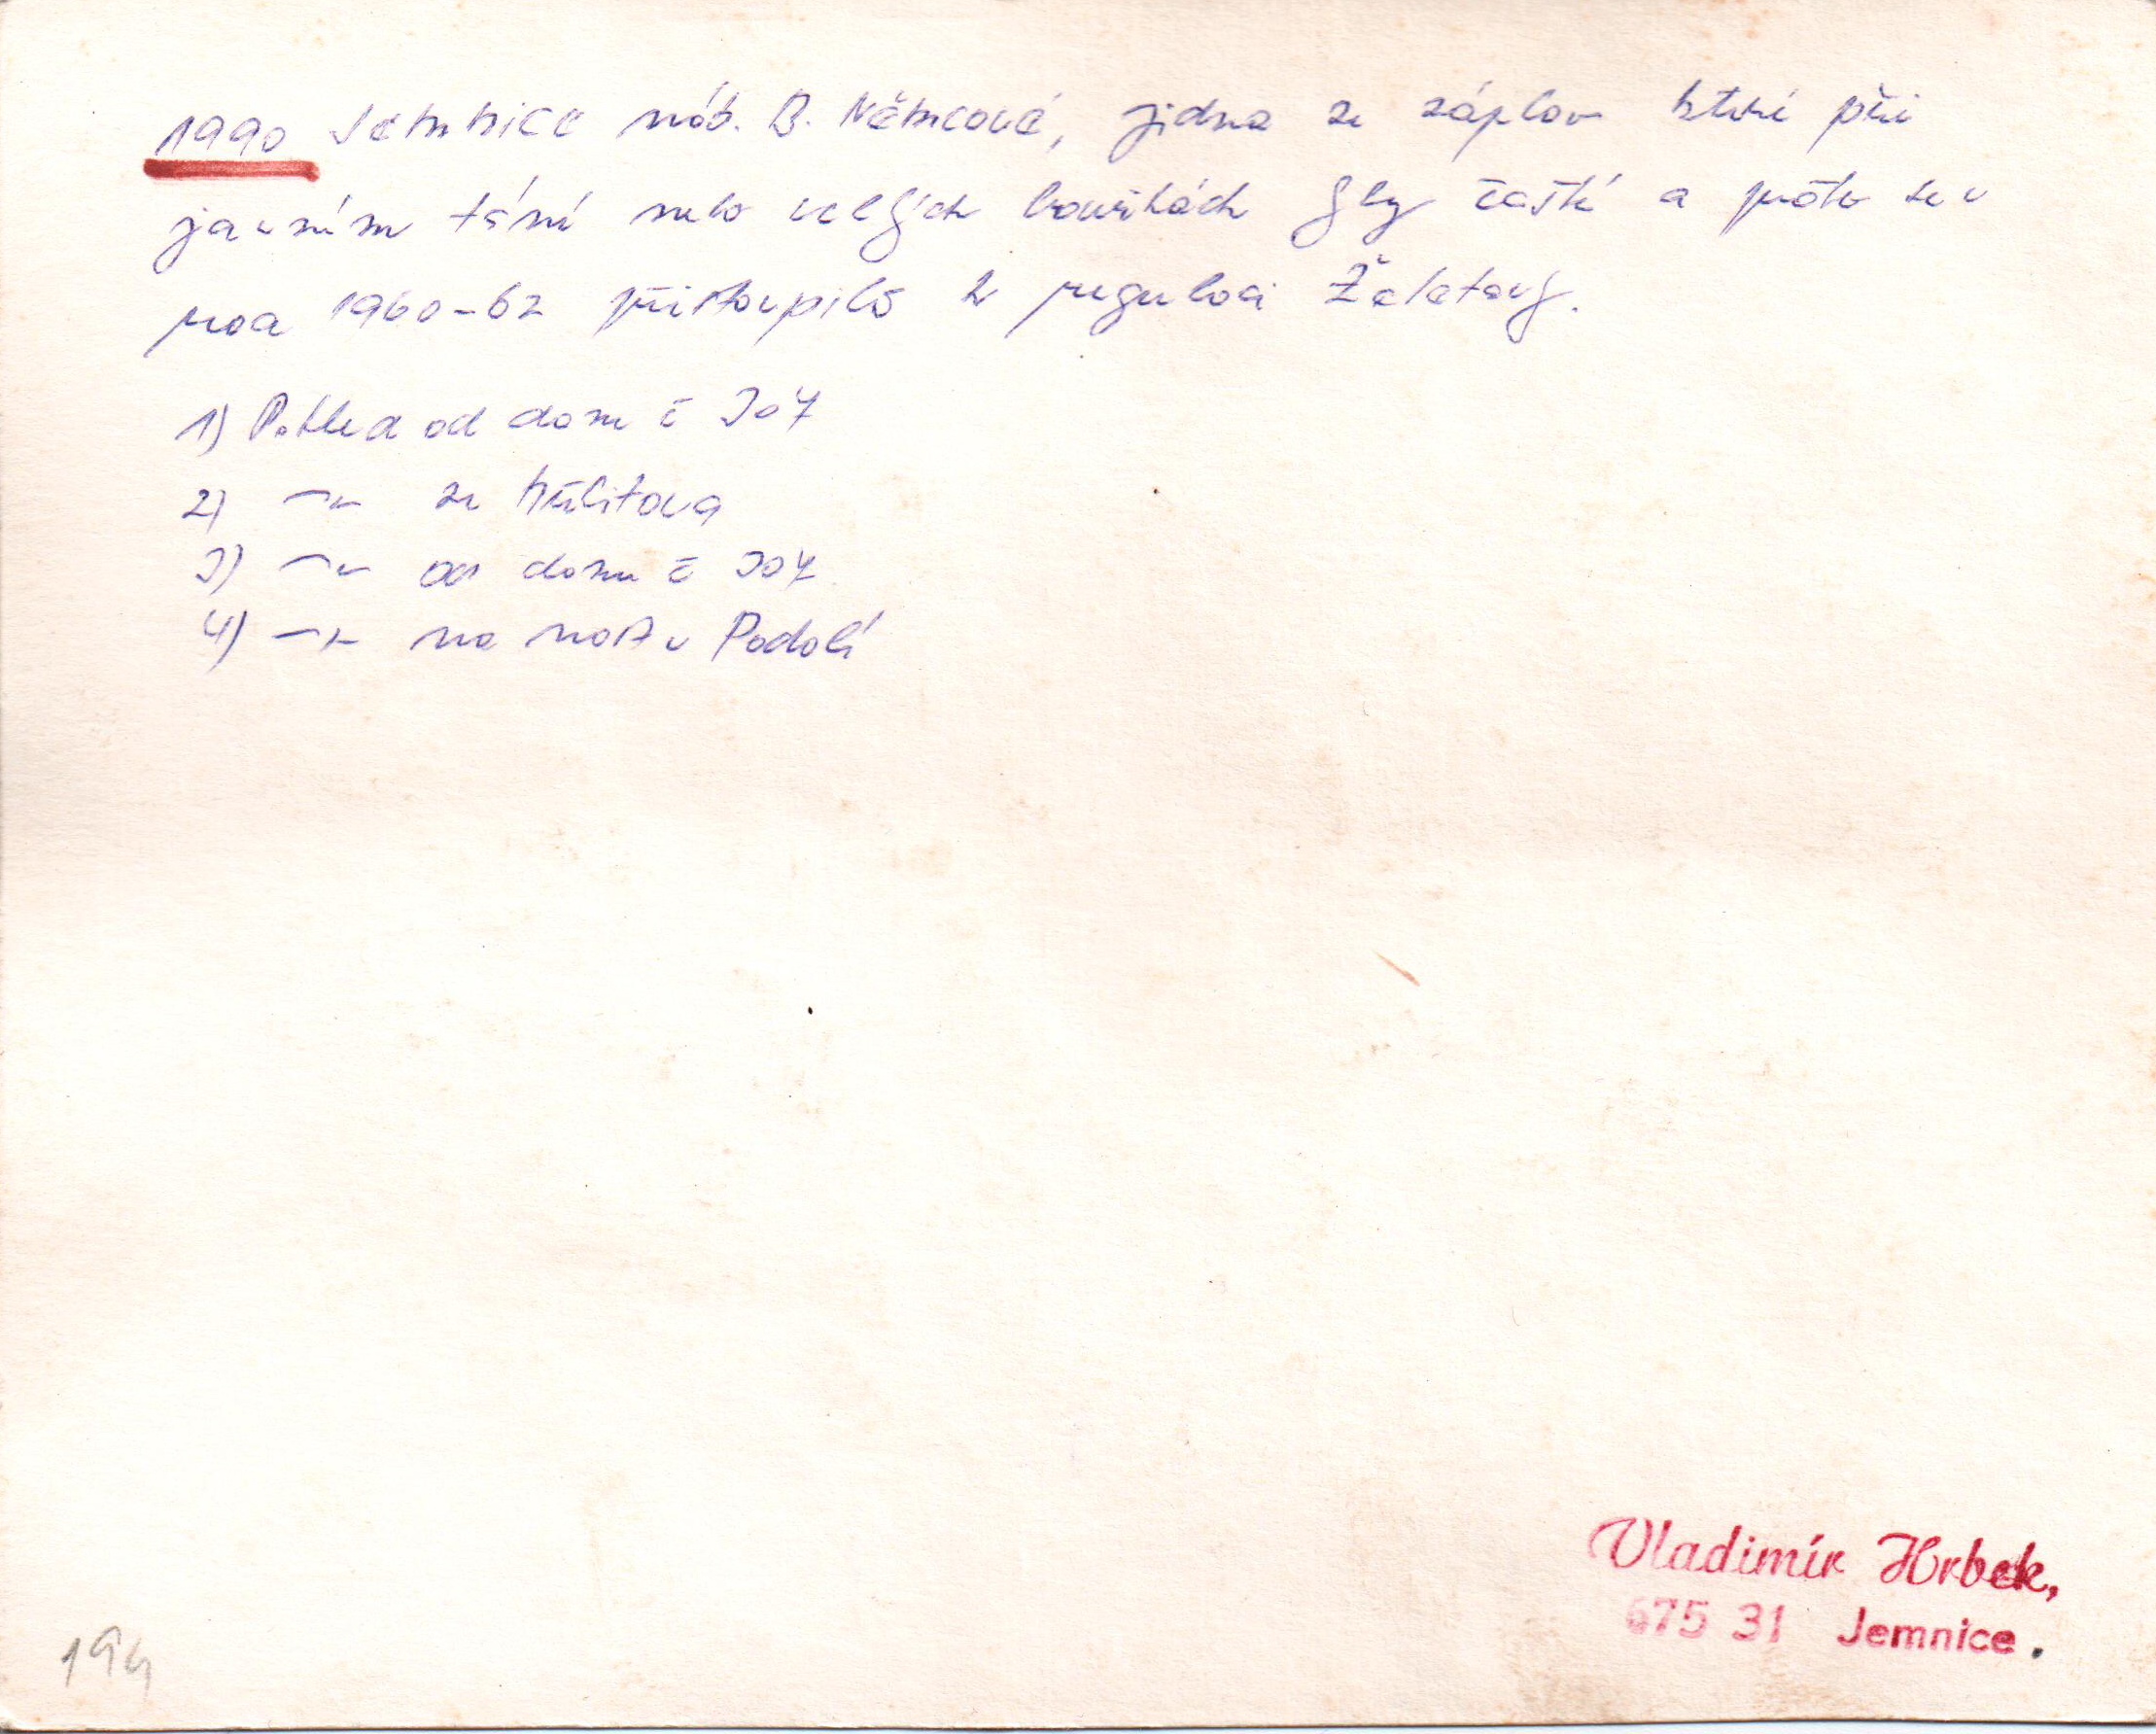 1990 Jemnice náb. B. Němcové, jedna ze záplav které při
jarním tání nebo velkých bouřkách byly časté a proto se v
roce 1960-62 přistoupilo k regulaci Želetavy.
1) Pohled od domu č 307
2) -"- ze hřbitova
3) -"- od domu č 307
4) -"- na most v Podolí
Vladimír Hrbek,
675 31 Jemnice.
194